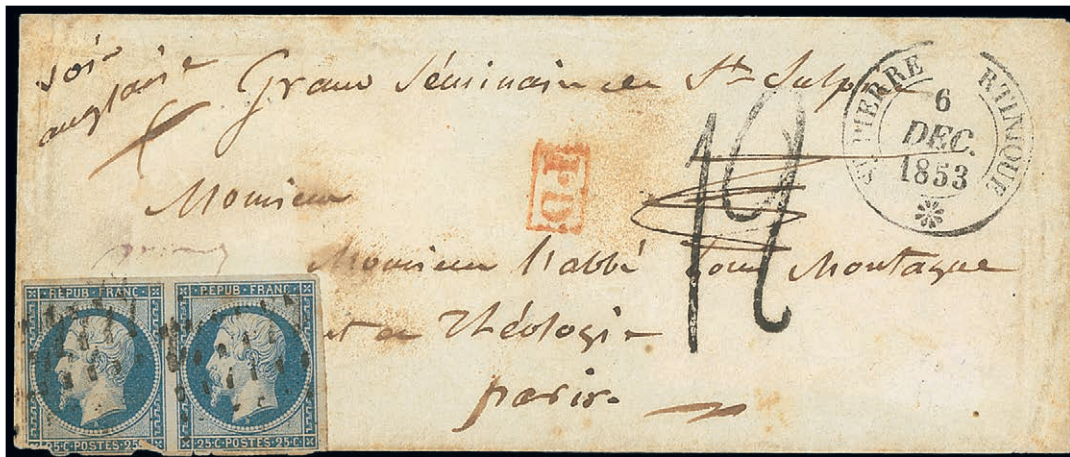 voie
anglaise
Grand Séminaire St Sulpice
ST PIERRE RTINIQUE
6
DEC.
1853
PD
12
Monsieur
Monsieur l'abbé Montague
en Théologie
paris.
REPUB FRANC
REPUB FRANC
25·C·POSTES·25·C
25·C·POSTES·25·C